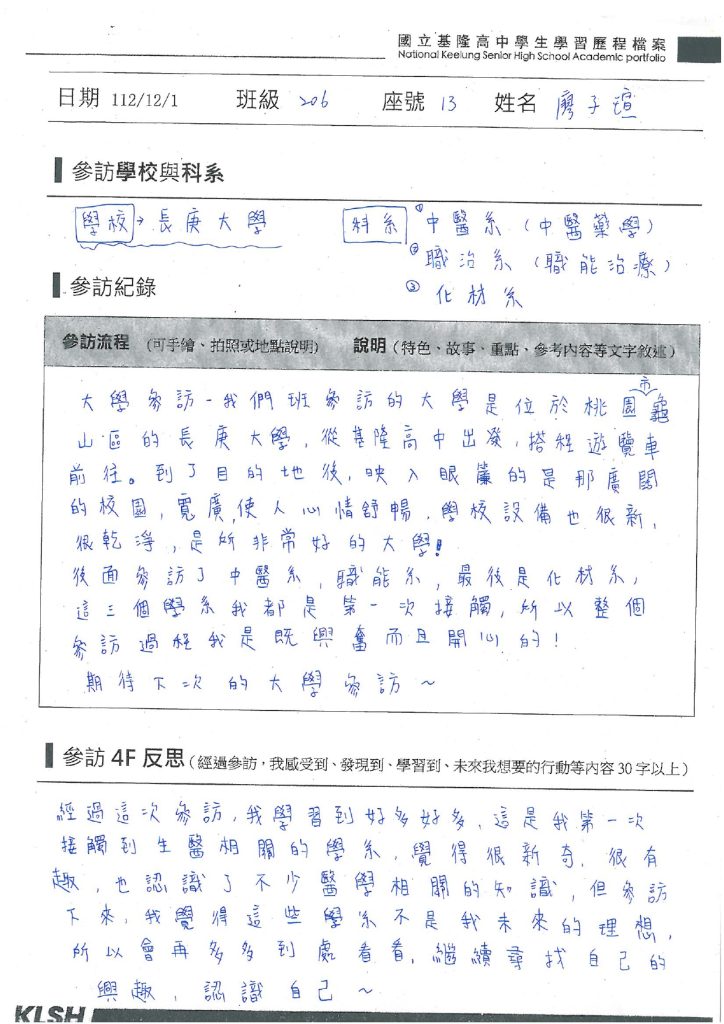 國立基隆高中學生學習歷程檔案
National Keelung Senior High School Academic portfolio
日期 112/12/1 班級 206 座號 13 姓名 廖子瑄
參訪學校與科系
學校→長庚大學 科系 ①中醫系(中醫藥學)
②職治系(職能治療)
③化材系
參訪紀錄
參訪流程 (可手繪、拍照或地點說明) 說明(特色、故事、重點、參考內容等文字敘述)
大學參訪-我們班參訪的大學是位於桃園市龜
山區的長庚大學,從基隆高中出發,搭程遊覽車
前往。到了目的地後,映入眼簾的是那廣闊
的校園,寬廣使人心情舒暢,學校設備也很新,
很乾淨,是所非常好的大學!
後面參訪了中醫系,職能系,最後是化材系,
這三個學系我都是第一次接觸,所以整個
參訪過程我是既興奮而且開心的!
期待下次的大學參訪~
參訪 4F 反思(經過參訪,我感受到、發現到、學習到、未來我想要的行動等內容 30 字以上)
經過這次參訪,我學習到好多好多,這是我第一次
接觸到生醫相關的學系,覺得很新奇,很有
趣,也認識了不少醫學相關的知識,但參訪
下來,我覺得這些學系不是我未來的理想,
所以會再多多到處看看,繼續尋找自己的
興趣,認識自己~
KLSH